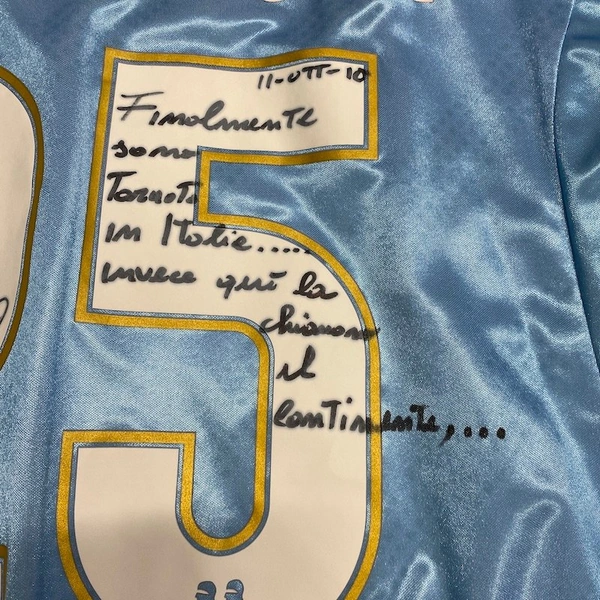 11-OTT-10
Finalmente
sono
Tornato
in Italia.....
invece qui la
chiamano
il
Continente,...
5